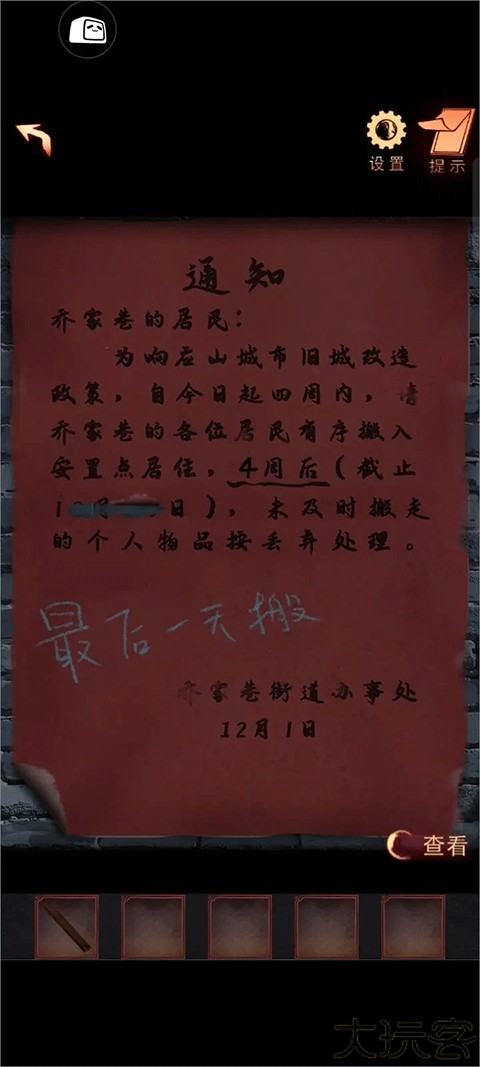 设置
提示
通知
乔家巷的居民：
为响应山城市旧城改造
政策，自今日起四周内，请
乔家巷的各位居民有序搬入
安置点居住，4周后（截止
1 月 日），未及时搬走
的个人物品按丢弃处理。
最后一天搬
乔家巷街道办事处
12月1日
查看
大玩客